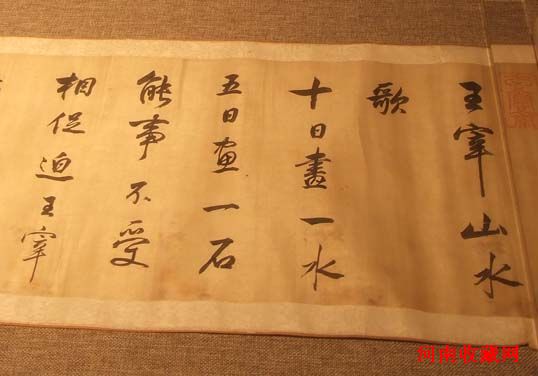 王宰山水
歌
十日畫一水
五日畫一石
能事不受
相促迫王宰
河南收藏网